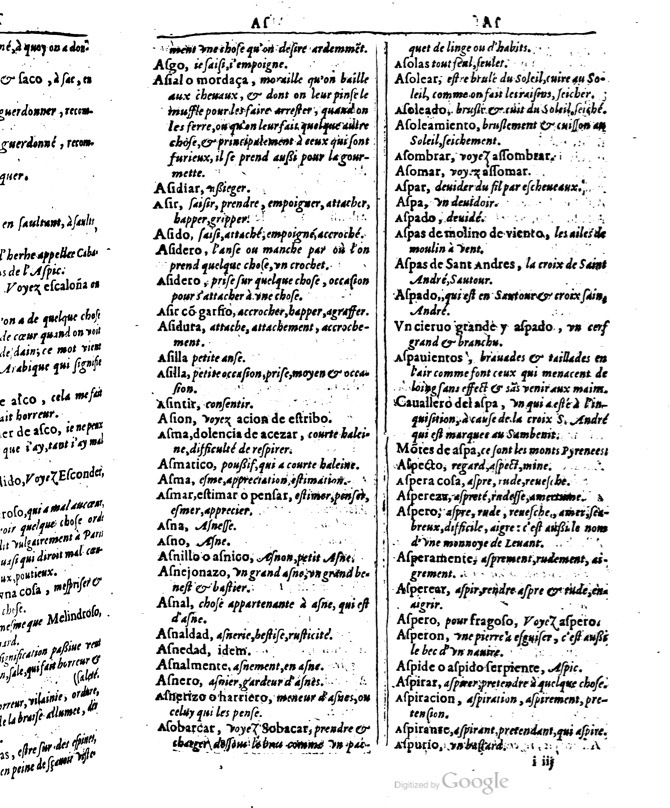 é, à quoy on a don-
& saco, à sac, en
guerdonner, recom-
guerdonné, recom-
quer.
en saultant, à saults
d'herbe appellee Caba-
as de l'Aspic.
Voyez escaloña en
'on a de quelque chose
de cœur quand on voit
de dain; ce mot vient
Arabique qui signifie
e asco, cela me fait
ait horreur.
ner de asco, ie ne peux
que i'ay, tant i'ay mal
dido, Voyez Esconder,
roso, qui a mal au cœur,
oir quelque chose ord
dit vulgairement à Paris
ussi qui diroit mal cœu-
ux, pouteux.
vna cosa, mespriser &
chose.
nesme que Melindroso,
ard.
signification passiue vent
n, sale, qui fait horreur &
(saleté.
orreur, vilainie, ordure,
de la braise allumee, dis
as, estre sur des espines,
en peine de sçauoir
AS
ment vne chose qu'on desire ardemmēt.
Asgo, ie saisi, i'empoigne.
Asial o mordaça, moraille qu'on baille
aux cheuaux, & dont on leur pinse le
muffle pour les faire arrester, quand on
les ferre, ou qu'on leur fait quelque autre
chose, & principalement à ceux qui sont
furieux, il se prend aussi pour la gour-
mette.
Asidiar, assieger.
Asir, saisir, prendre, empoigner, attacher,
happer, gripper.
Asido, saisi, attaché, empoigné, accroché.
Asidero, l'anse ou manche par où l'on
prend quelque chose, vn crochet.
Asidero, prise sur quelque chose, occasion
pour s'attacher à vne chose.
Asir cō garfio, accrocher, happer, agraffer.
Asidura, attache, attachement, accroche-
ment.
Asilla petite anse.
Asilla, petite occasion, prise, moyen & occa-
sion.
Asintir, consentir.
Asion, voyez acion de estribo.
Asma, dolencia de acezar, courte halei-
ne, difficulté de respirer.
Asmatico, poussif, qui a courte haleine.
Asma, esme, appreciation, estimation.
Asmar, estimar o pensar, estimer, penser,
esmer, apprecier.
Asna, Asnesse.
Asno, Asne.
Asnillo o asnico, Asnon, petit Asne.
Asnejonazo, vn grand asno, vn grand be-
nest & bastier.
Asnal, chose appartenante à asne, qui est
d'asne.
Asnaldad, asnerie, bestise, rusticité.
Asnedad, idem.
Asnalmente, asnement, en asne.
Asnero, asnier, gardeur d'asnes.
Asnerizo o harriero, meneur d'asnes, ou
celuy qui les pense.
Asobarcar, voyez Sobacar, prendre &
charger dessous le bras comme vn pac-
AS
quet de linge ou d'habits.
Asolas tout seul, seulet.
Asolear, estre bruslé du Soleil, cuire au So-
leil, comme on fait les raisins, seicher.
Asoleado, bruslé & cuit du Soleil, seiché.
Asoleamiento, bruslement & cuisson au
Soleil, seichement.
Asombrar, voyez assombrar.
Asomar, voyez assomar.
Aspar, deuider du fil par escheueaux.
Aspa, vn deuidoir.
Aspado, deuidé.
Aspas de molino de viento, les ailes de
moulin à vent.
Aspas de Sant Andres, la croix de Saint
André, Sautour.
Aspado, qui est en Sautour & croix sain
André.
Vn cieruo grande y aspado, vn cerf
grand & branchu.
Aspauientos, brauades & taillades en
l'air comme font ceux qui menacent de
loing sans effect & sās venir aux mains.
Cauallero del aspa, vn qui a esté à l'in-
quisition, à cause de la croix S. André
qui est marquee au Sambenit.
Mōtes de aspa, ce sont les monts Pyrenees
Aspecto, regard, aspect, mine.
Aspera cosa, aspre, rude, reuesche.
Aspereza, aspreté, rudesse, amertume.
Aspero, aspre, rude, reuesche, amer, sca-
breux, difficile, aigre: c'est aussi le nom
d'vne monnoye de Leuant.
Asperamente, asprement, rudement, ai-
grement.
Asperear, aspir, rendre aspre & rude, en-
aigrir.
Aspero, pour fragoso, Voyez aspero.
Asperon, vne pierre à esguiser, c'est aussi
le bec d'vn nauire.
Aspide o aspido serpiente, Aspic.
Aspirar, aspirer, pretendre à quelque chose.
Aspiracion, aspiration, aspirement, pre-
tension.
Aspirante, aspirant, pretendant, qui aspire.
Aspurio, vn bastard.
i iij
Digitized by Google